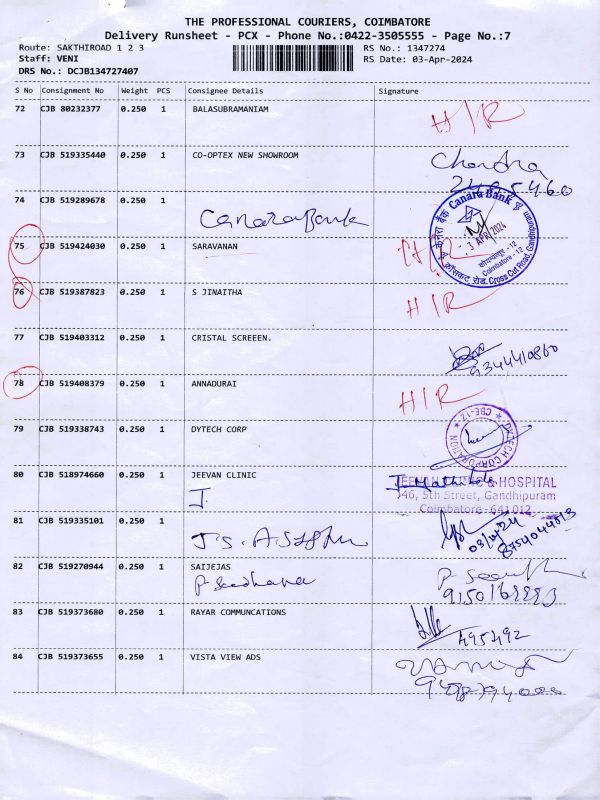 THE PROFESSIONAL COURIERS, COIMBATORE
Delivery Runsheet - PCX - Phone No.:0422-3505555 - Page No.:7
Route: SAKTHIROAD 1 2 3 RS No.: 1347274
Staff: VENI RS Date: 03-Apr-2024
DRS No.: DCJB134727407
S No Consignment No Weight PCS Consignee Details Signature
72 CJB 80232377 0.250 1 BALASUBRAMANIAM H/R
73 CJB 519335440 0.250 1 CO-OPTEX NEW SHOWROOM Chandra
74 CJB 519289678 0.250 1
Canara Bank
केनरा बैंक Canara Bank
3 APR 2024
कोयम्बत्तूर - 12
Coimbatore - 12
क्रॉसकट रोड Cross Cut Road, Gandhipuram
75 CJB 519424030 0.250 1 SARAVANAN H/R
76 CJB 519387823 0.250 1 S JINAITHA H/R
77 CJB 519403312 0.250 1 CRISTAL SCREEEN.
9344410860
78 CJB 519408379 0.250 1 ANNADURAI H/R
79 CJB 519338743 0.250 1 DYTECH CORP
DYTECH CORPORATION ★ CBE-12 ★
80 CJB 518974660 0.250 1 JEEVAN CLINIC
J
JEEVAN CLINIC & HOSPITAL
346, 5th Street, Gandhipuram
Coimbatore-641012
81 CJB 519335101 0.250 1
03/04/24
8754044513
82 CJB 519270944 0.250 1 SAIJEJAS
83 CJB 519373680 0.250 1 RAYAR COMMUNCATIONS
495292
84 CJB 519373655 0.250 1 VISTA VIEW ADS